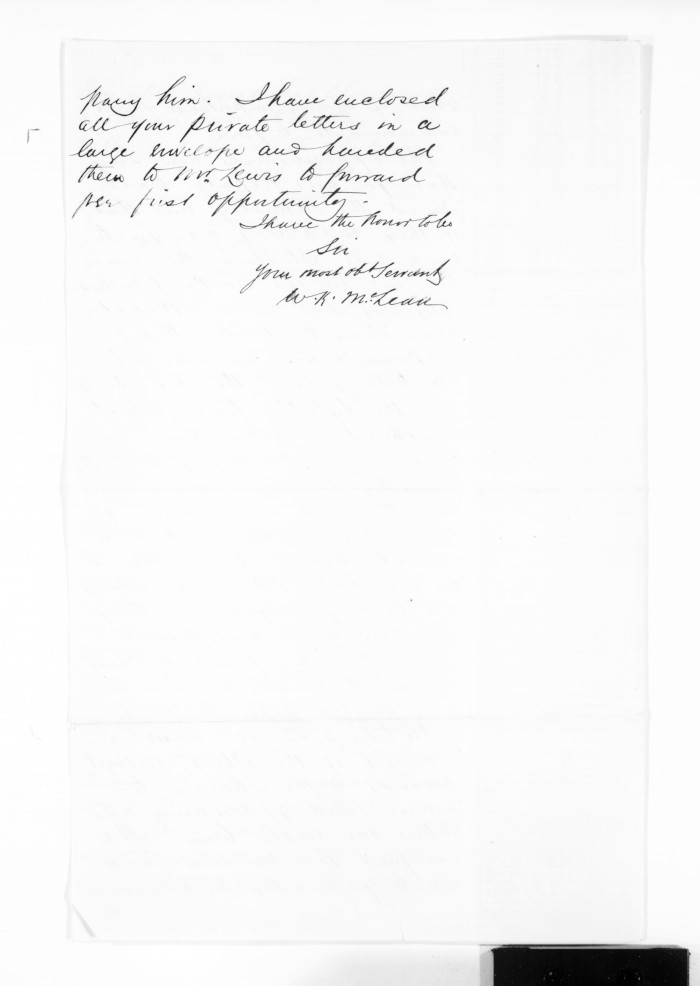 pany him. I have enclosed
all your private letters in a
large envelope and handed
them to Mr. Lewis to forward
per first opportunity.
I have the honor to be
Sir
Your most obt Servant
W. K. McLean